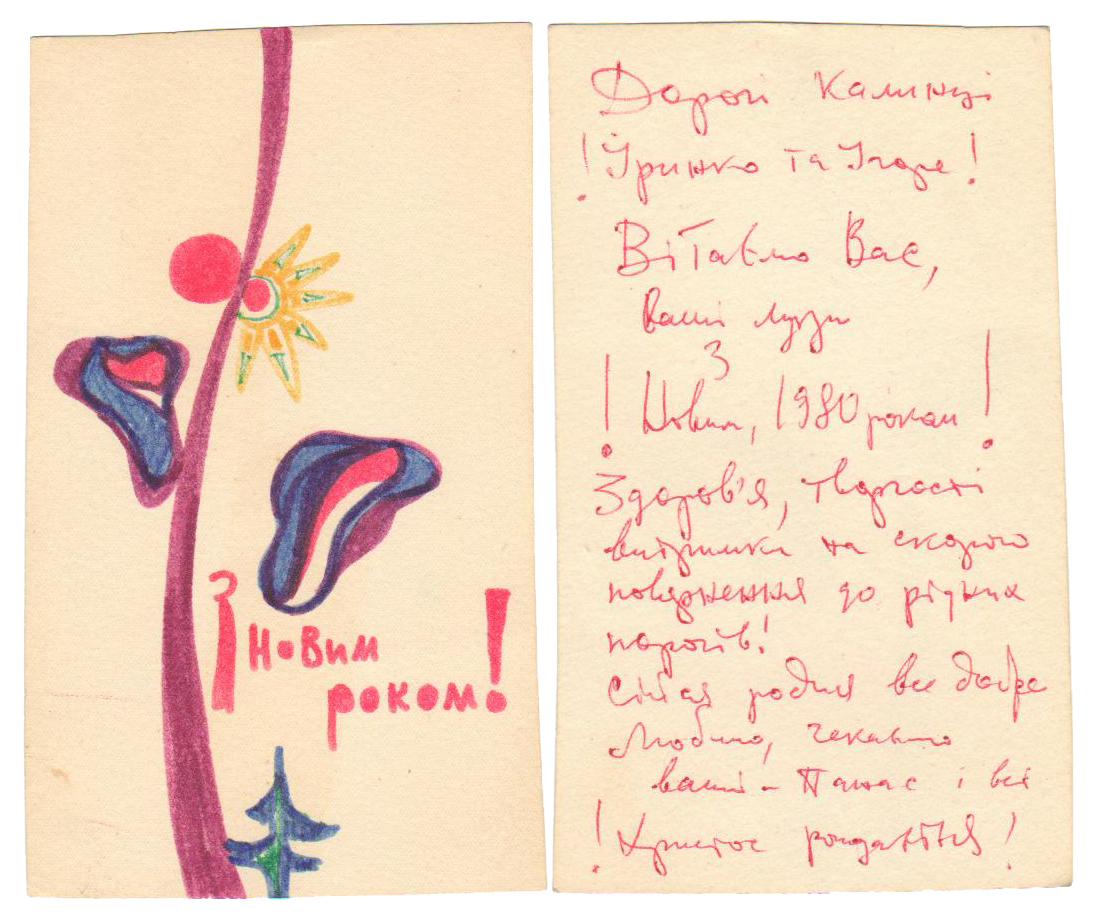 З
Новим
роком!
Дорогі Калинці
! Іринко та Ігоре!
Вітаємо Вас,
Ваші друзі
З
! Новим, 1980 роком!
Здоров'я, творчості
витримки на скорого
повернення до рідних
порогів!
родил все добре
Любимо, чекаємо
ваші – Панас і всі
! Христос рождається!